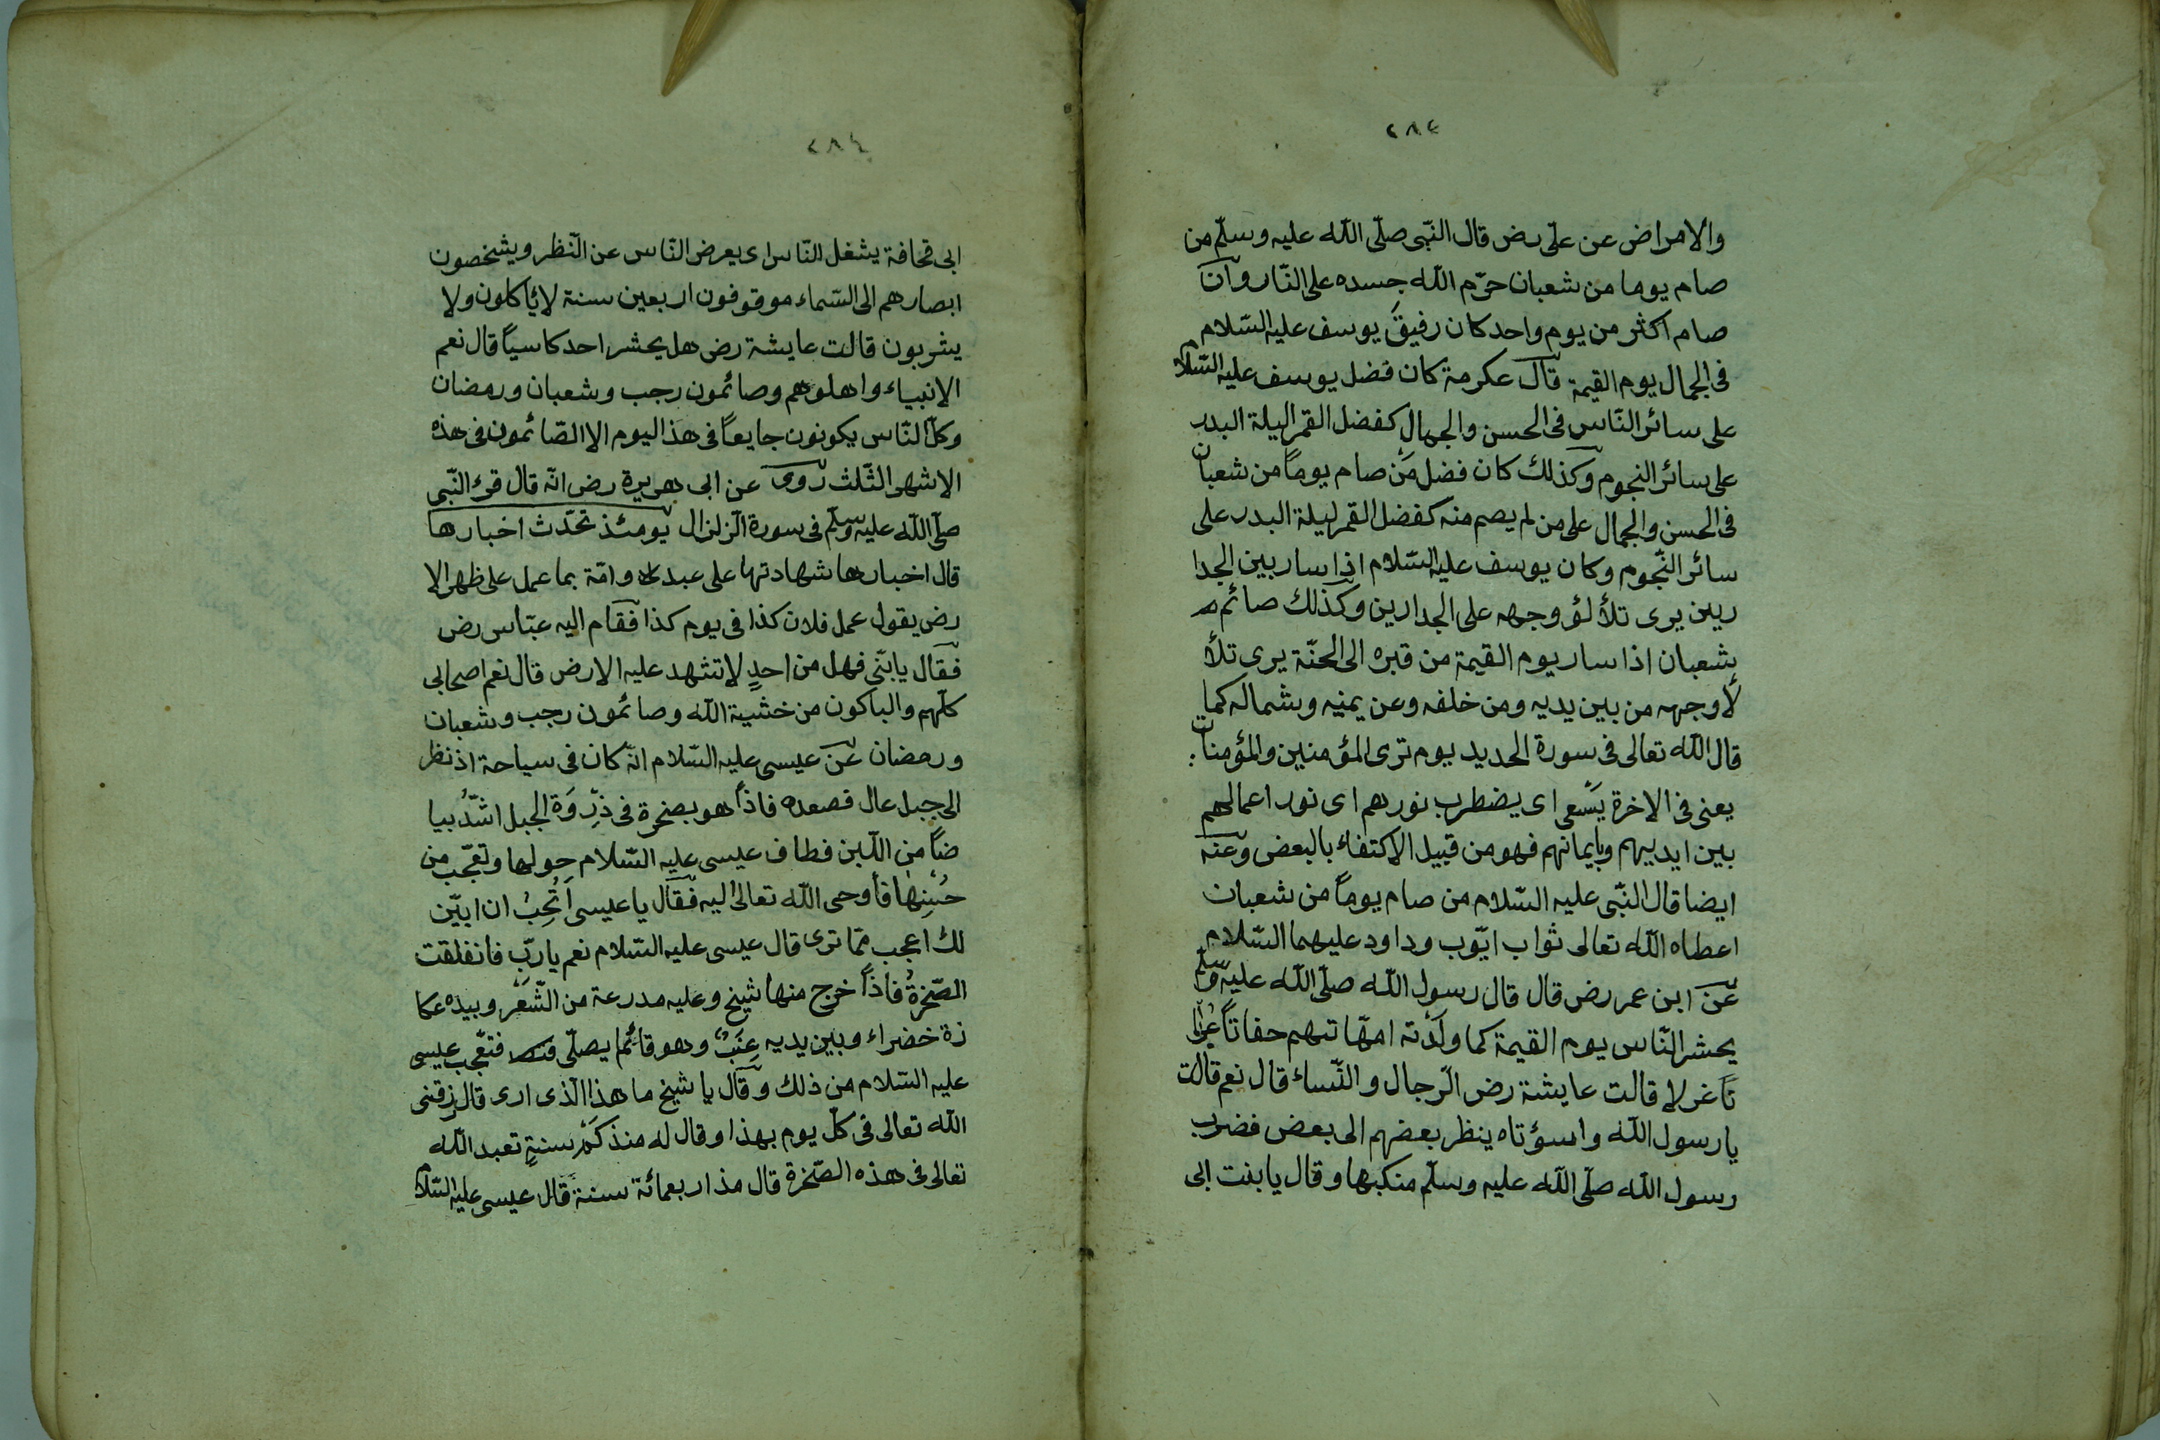 ٢٨٤
والامراض عن علّى رض قال النّبى صلّى اللّه عليه وسلّم من
صام يوما من شعبان حرّم اللّه جسده على النّار وآن
صام اكثر من يوم واحد كان رفيقَ يوسف عليه السّلام
فى الجمال يوم القيمة قال عكرمة كان فضل يوسف عليه السّلام
على سائر النّاس فى الحسن والجمال كفضل القمر ليلة البدر
على سائر النجوم وكذلك كان فضل مَنْ صام يوماً من شعبان
فى الحسن والجمال على من لم يصم منه كفضل القمر ليلة البدر على
سائر النّجوم وكان يوسف عليه السّلام اذا سار بين الجدا
رين يرى تلألؤ وجهه على الجدارين وكذلك صائم
شعبان اذا سار يوم القيمة من قبره الى الجنّة يرى تلأ
لأ وجهه من بين يديه ومن خلفه وعن يمنيه وشماله كما
قال اللّه تعالى فى سورة الحديد يوم ترى المؤمنين والمؤمنات
يعنى فى الاخرة يَسْعى اى يضطرب نورهم اى نور اعمالهم
بين ايديهم وبايمانهم فهو من قبيل الاكتفاء بالبعض وعنه
ايضا قال النّبى عليه السّلام من صام يوماً من شعبان
اعطاه اللّه تعالى ثواب ايّوب وداود عليهما السّلام
عن ابن عمر رض قال قال رسول اللّه صلّى اللّه عليه وسلّم
يحشر النّاس يوم القيمة كما ولدته امّهاتهم حفاتاً عرا
تاً غرلا قالت عايشة رض الرّجال والنّساء قال نعم قالت
يا رسول اللّه واسؤتاه ينظر بعضهم الى بعض فضرب
رسول اللّه صلّى اللّه عليه وسلّم منكبها وقال يا بنت ابى
٢٨٤
ابى قحافة يشغل النّاس اى يعرض النّاس عن النّظر ويشخصون
ابصارهم الى السّماء موقوفون اربعين سنة لا يأكلون ولا
يشربون قالت عايشة رض هل يحشر احد كاسياً قال نعم
الانبياء واهلوهم وصائمون رجب وشعبان ورمضان
وكلّ النّاس يكونون جايعاً فى هذا اليوم الا الصّائمون فى هذه
الاشهر الثّلث روى عن ابى هريرة رض انّه قال قرء النّبى
صلّى اللّه عليه وسلّم فى سورة الزلزال يومئذ تحدّث اخبارها
قال اخبارها شهادتها على عبد وامّة بما عمل على ظهر الا
رض يقول عمل فلان كذا فى يوم كذا فقام اليه عبّاس رض
فقال يا بنّى فهل من احدٍ لا تشهد عليه الارض قال نعم اصحابى
كلّهم والباكون من خشية اللّه وصائمون رجب وشعبان
ورمضان عن عيسى عليه السّلام انّه كان فى سياحة اذ نظر
الى جبل عال فصعده فاذاً هو بصخرة فى ذِرْوَة الجبل اشدّ بيا
ضاً من اللّبن فطاف عيسى عليه السّلام حولها وتعجّب من
حُسْنِها فأوحى اللّه تعالى اليه فقال يا عيسى اَتُحِبُ ان ابيّن
لك اعجب ممّا ترى قال عيسى عليه السّلام نعم يا ربّ فانفلقت
الصّخرةُ فاذاً خرج منها شيخ وعليه مدرعة من الشّعَر وبيده عكا
زة خضراء وبين يديه عِنَبٌ وهو قائم يصلّى فتعّجب عيسى
عليه السّلام من ذلك وقال يا شيخ ما هذا الّذى ارى قال رزقنى
اللّه تعالى فى كلّ يوم بهذا وقال له منذ كَمْ سنةٍ تعبد اللّه
تعالى فى هذه الصّخرة قال مذ اربعمائة سنة قال عيسى عليه السّلام